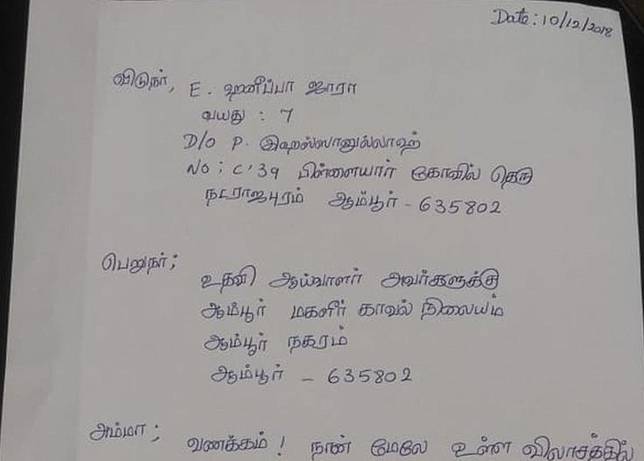 Date: 10/12/2018
விடுநர், E. ஹனீப்பா ஜாரா
வயது : 7
D/O P. இஹஸ்ஸானுல்லாஹ்
NO: C'39 பிள்ளையார் கோவில் தெரு
நடராஜபுரம் ஆம்பூர் - 635802
பெறுநர்;
உதவி ஆய்வாளர் அவர்களுக்கு
ஆம்பூர் மகளிர் காவல் நிலையம்
ஆம்பூர் நகரம்
ஆம்பூர் - 635802
அம்மா; வணக்கம்! நான் மேலே உள்ள விலாசத்தில்